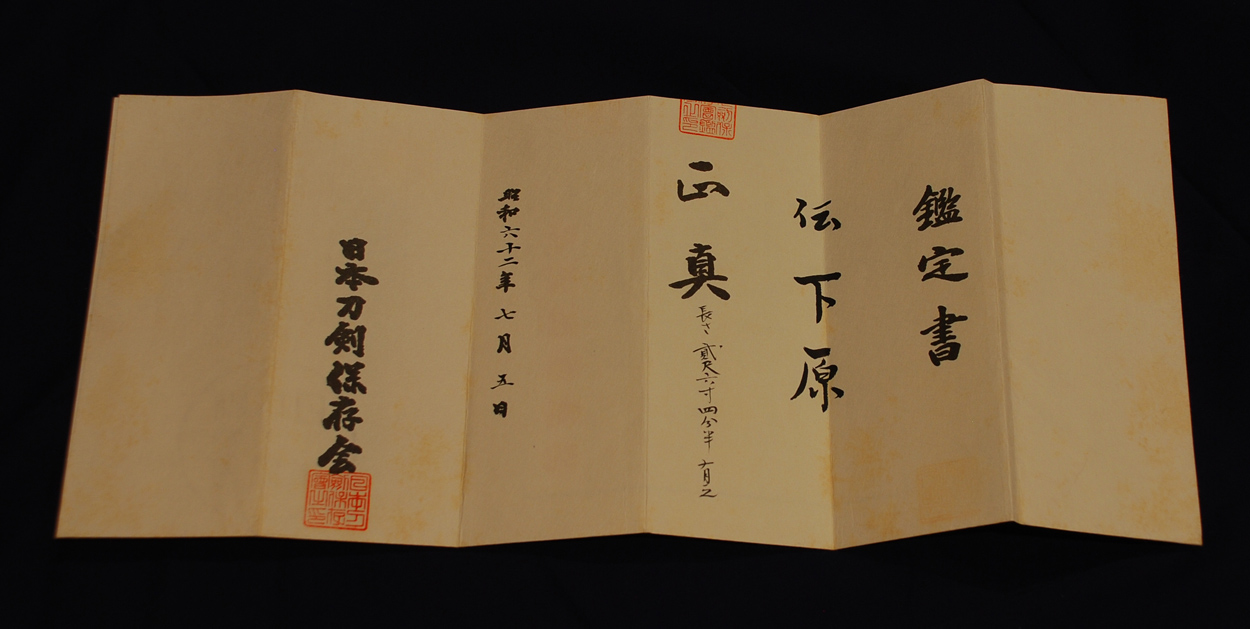 鑑定書
伝下原
正真
長さ 貳尺六寸四分半 有之
昭和六十二年 七月 五日
日本刀剣保存会